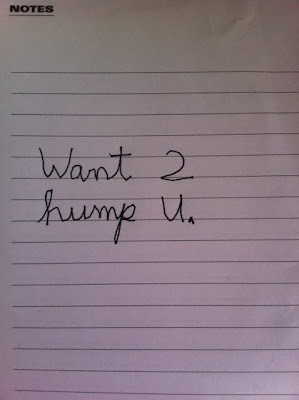 NOTES
Want 2
hump U.